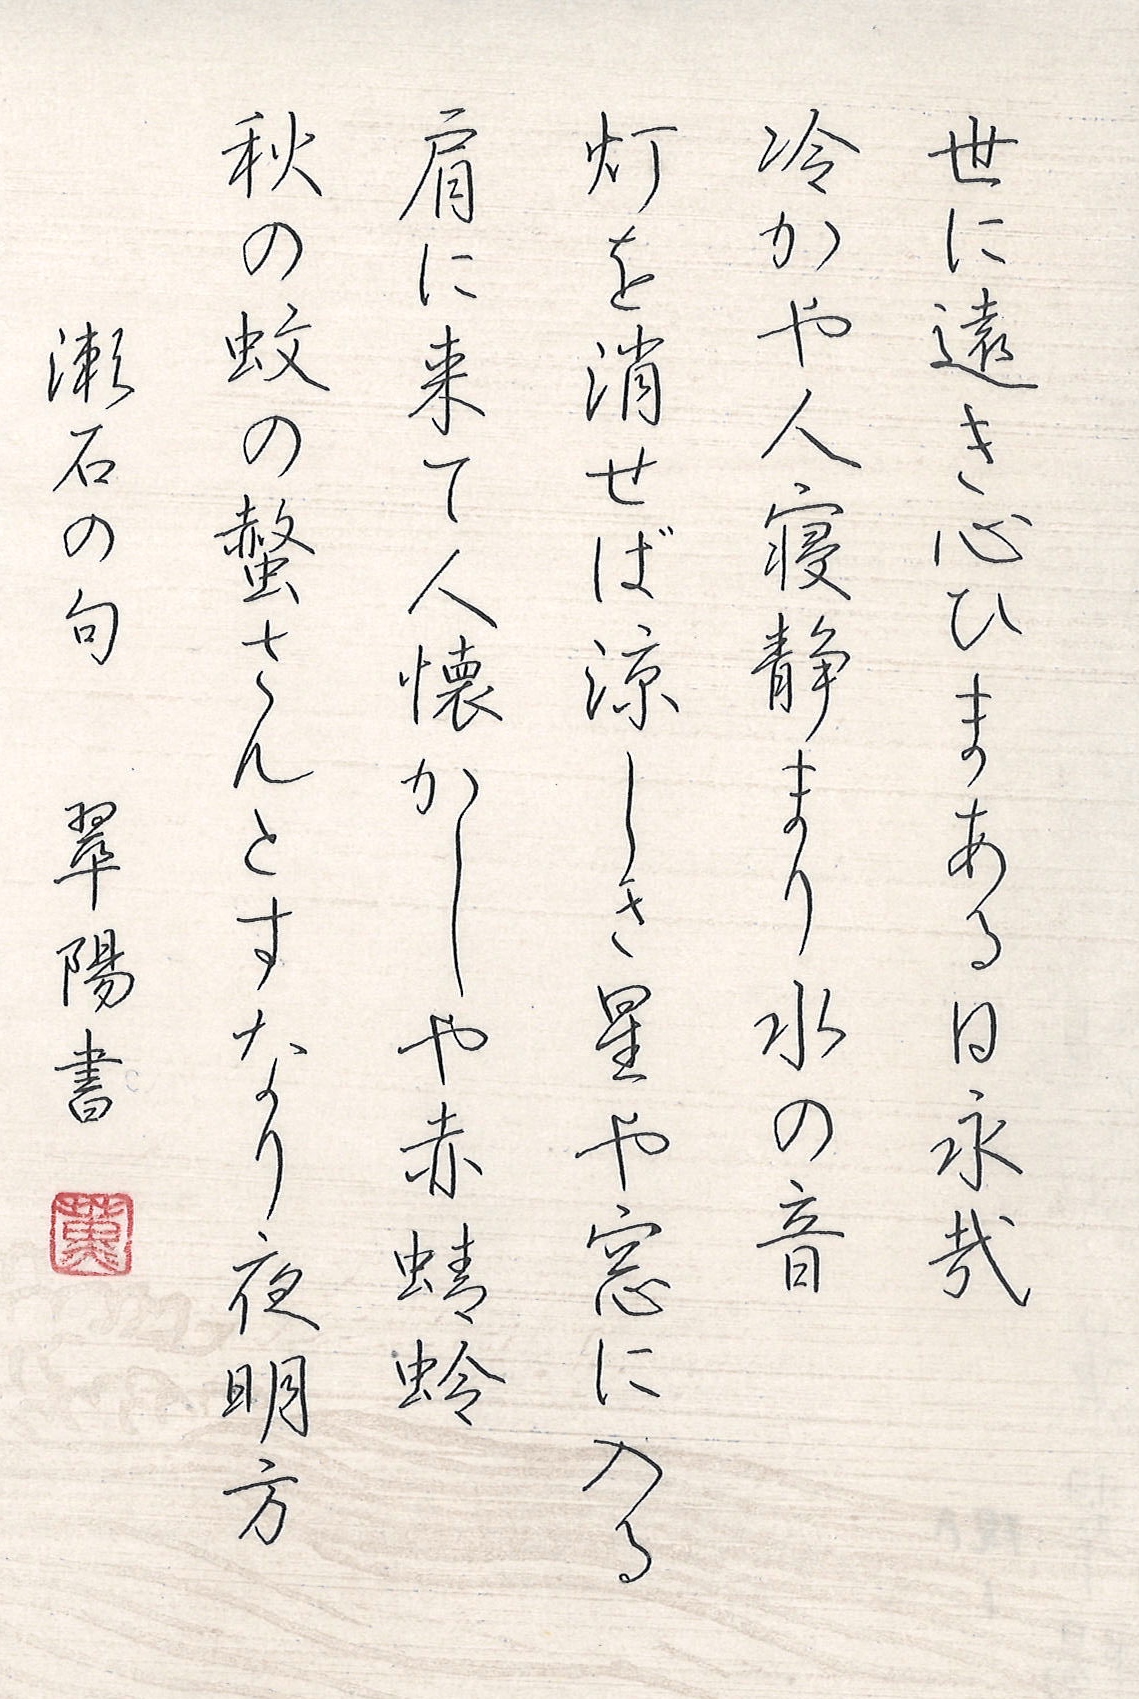 世に遠き心ひまある日永哉
冷かや人寝静まり水の音
灯を消せば涼しき星や窓に入る
肩に来て人懐かしや赤蜻蛉
秋の蚊の螫さんとすなり夜明方
漱石の句 翠陽書
黄